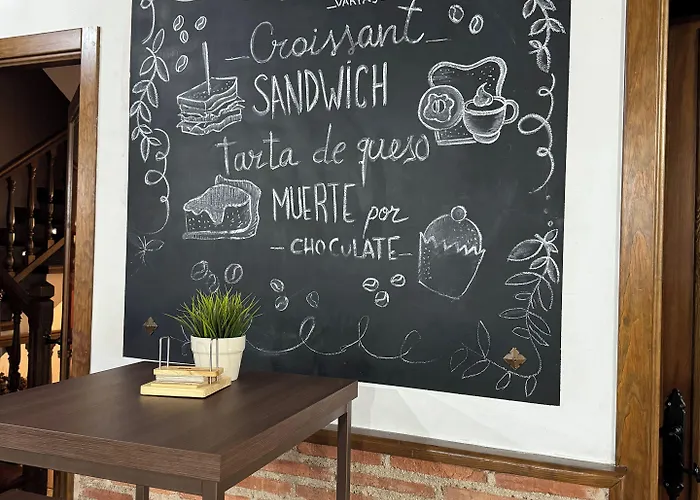 VARIAS
Croissant
SANDWÍCH
tarta de queso
MUERTE por
CHOCULATE